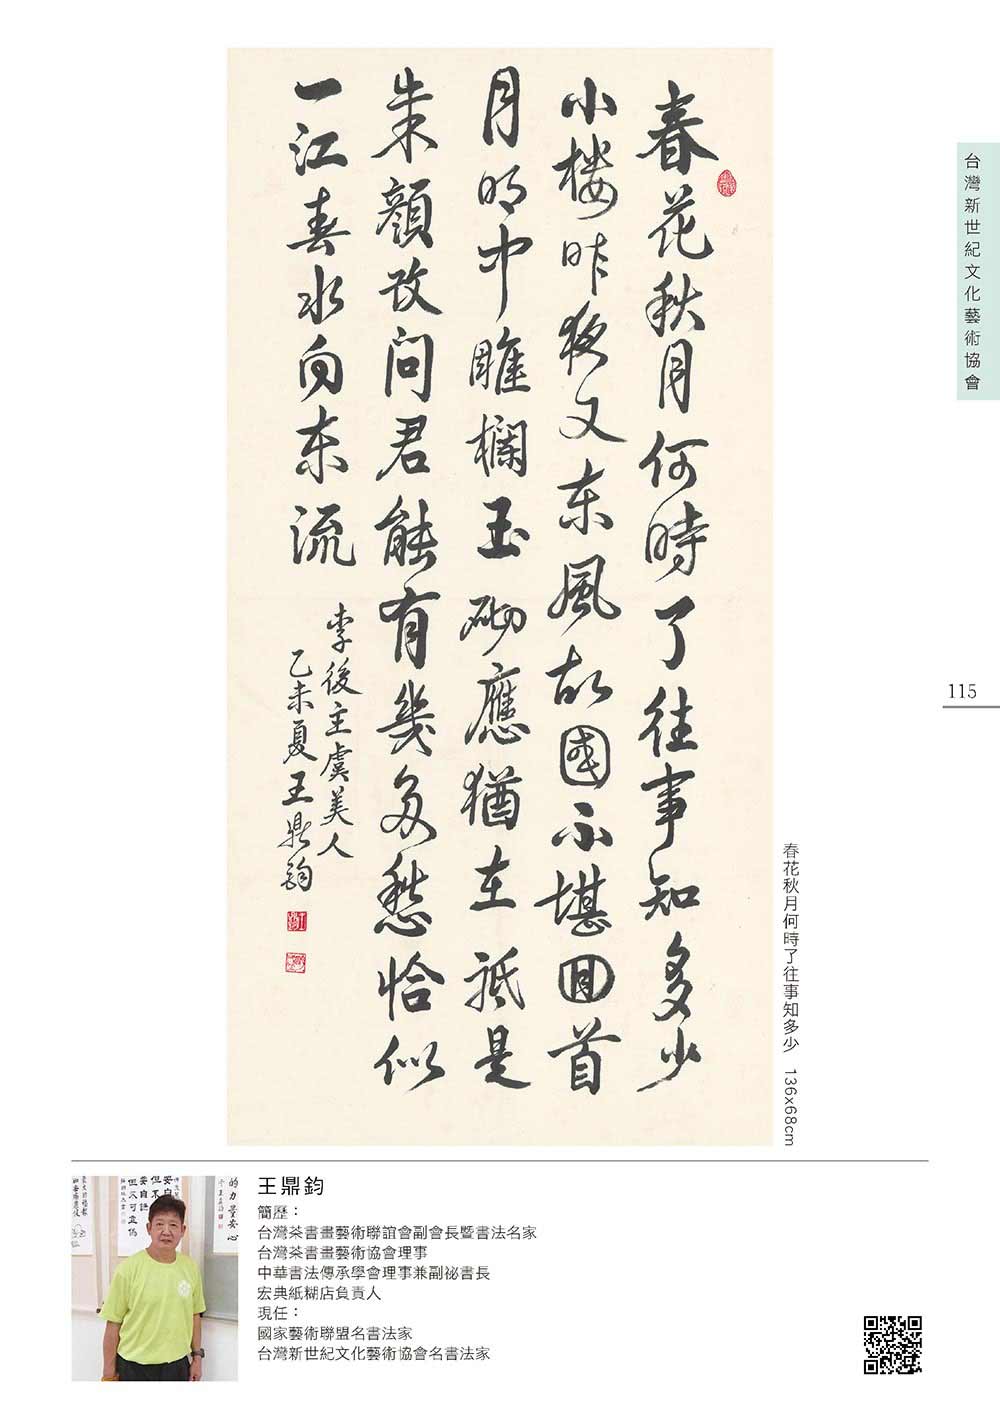 台灣新世紀文化藝術協會
115
春花秋月何時了往事知多少
小樓昨夜又東風故國不堪回首
月明中雕欄玉砌應猶在祗是
朱顏改問君能有幾多愁恰似
一江春水向東流
李後主虞美人
乙未夏王鼎鈞
春花秋月何時了往事知多少 136x68cm
王鼎鈞
簡歷：
台灣茶書畫藝術聯誼會副會長暨書法名家
台灣茶書畫藝術協會理事
中華書法傳承學會理事兼副祕書長
宏典紙糊店負責人
現任：
國家藝術聯盟名書法家
台灣新世紀文化藝術協會名書法家